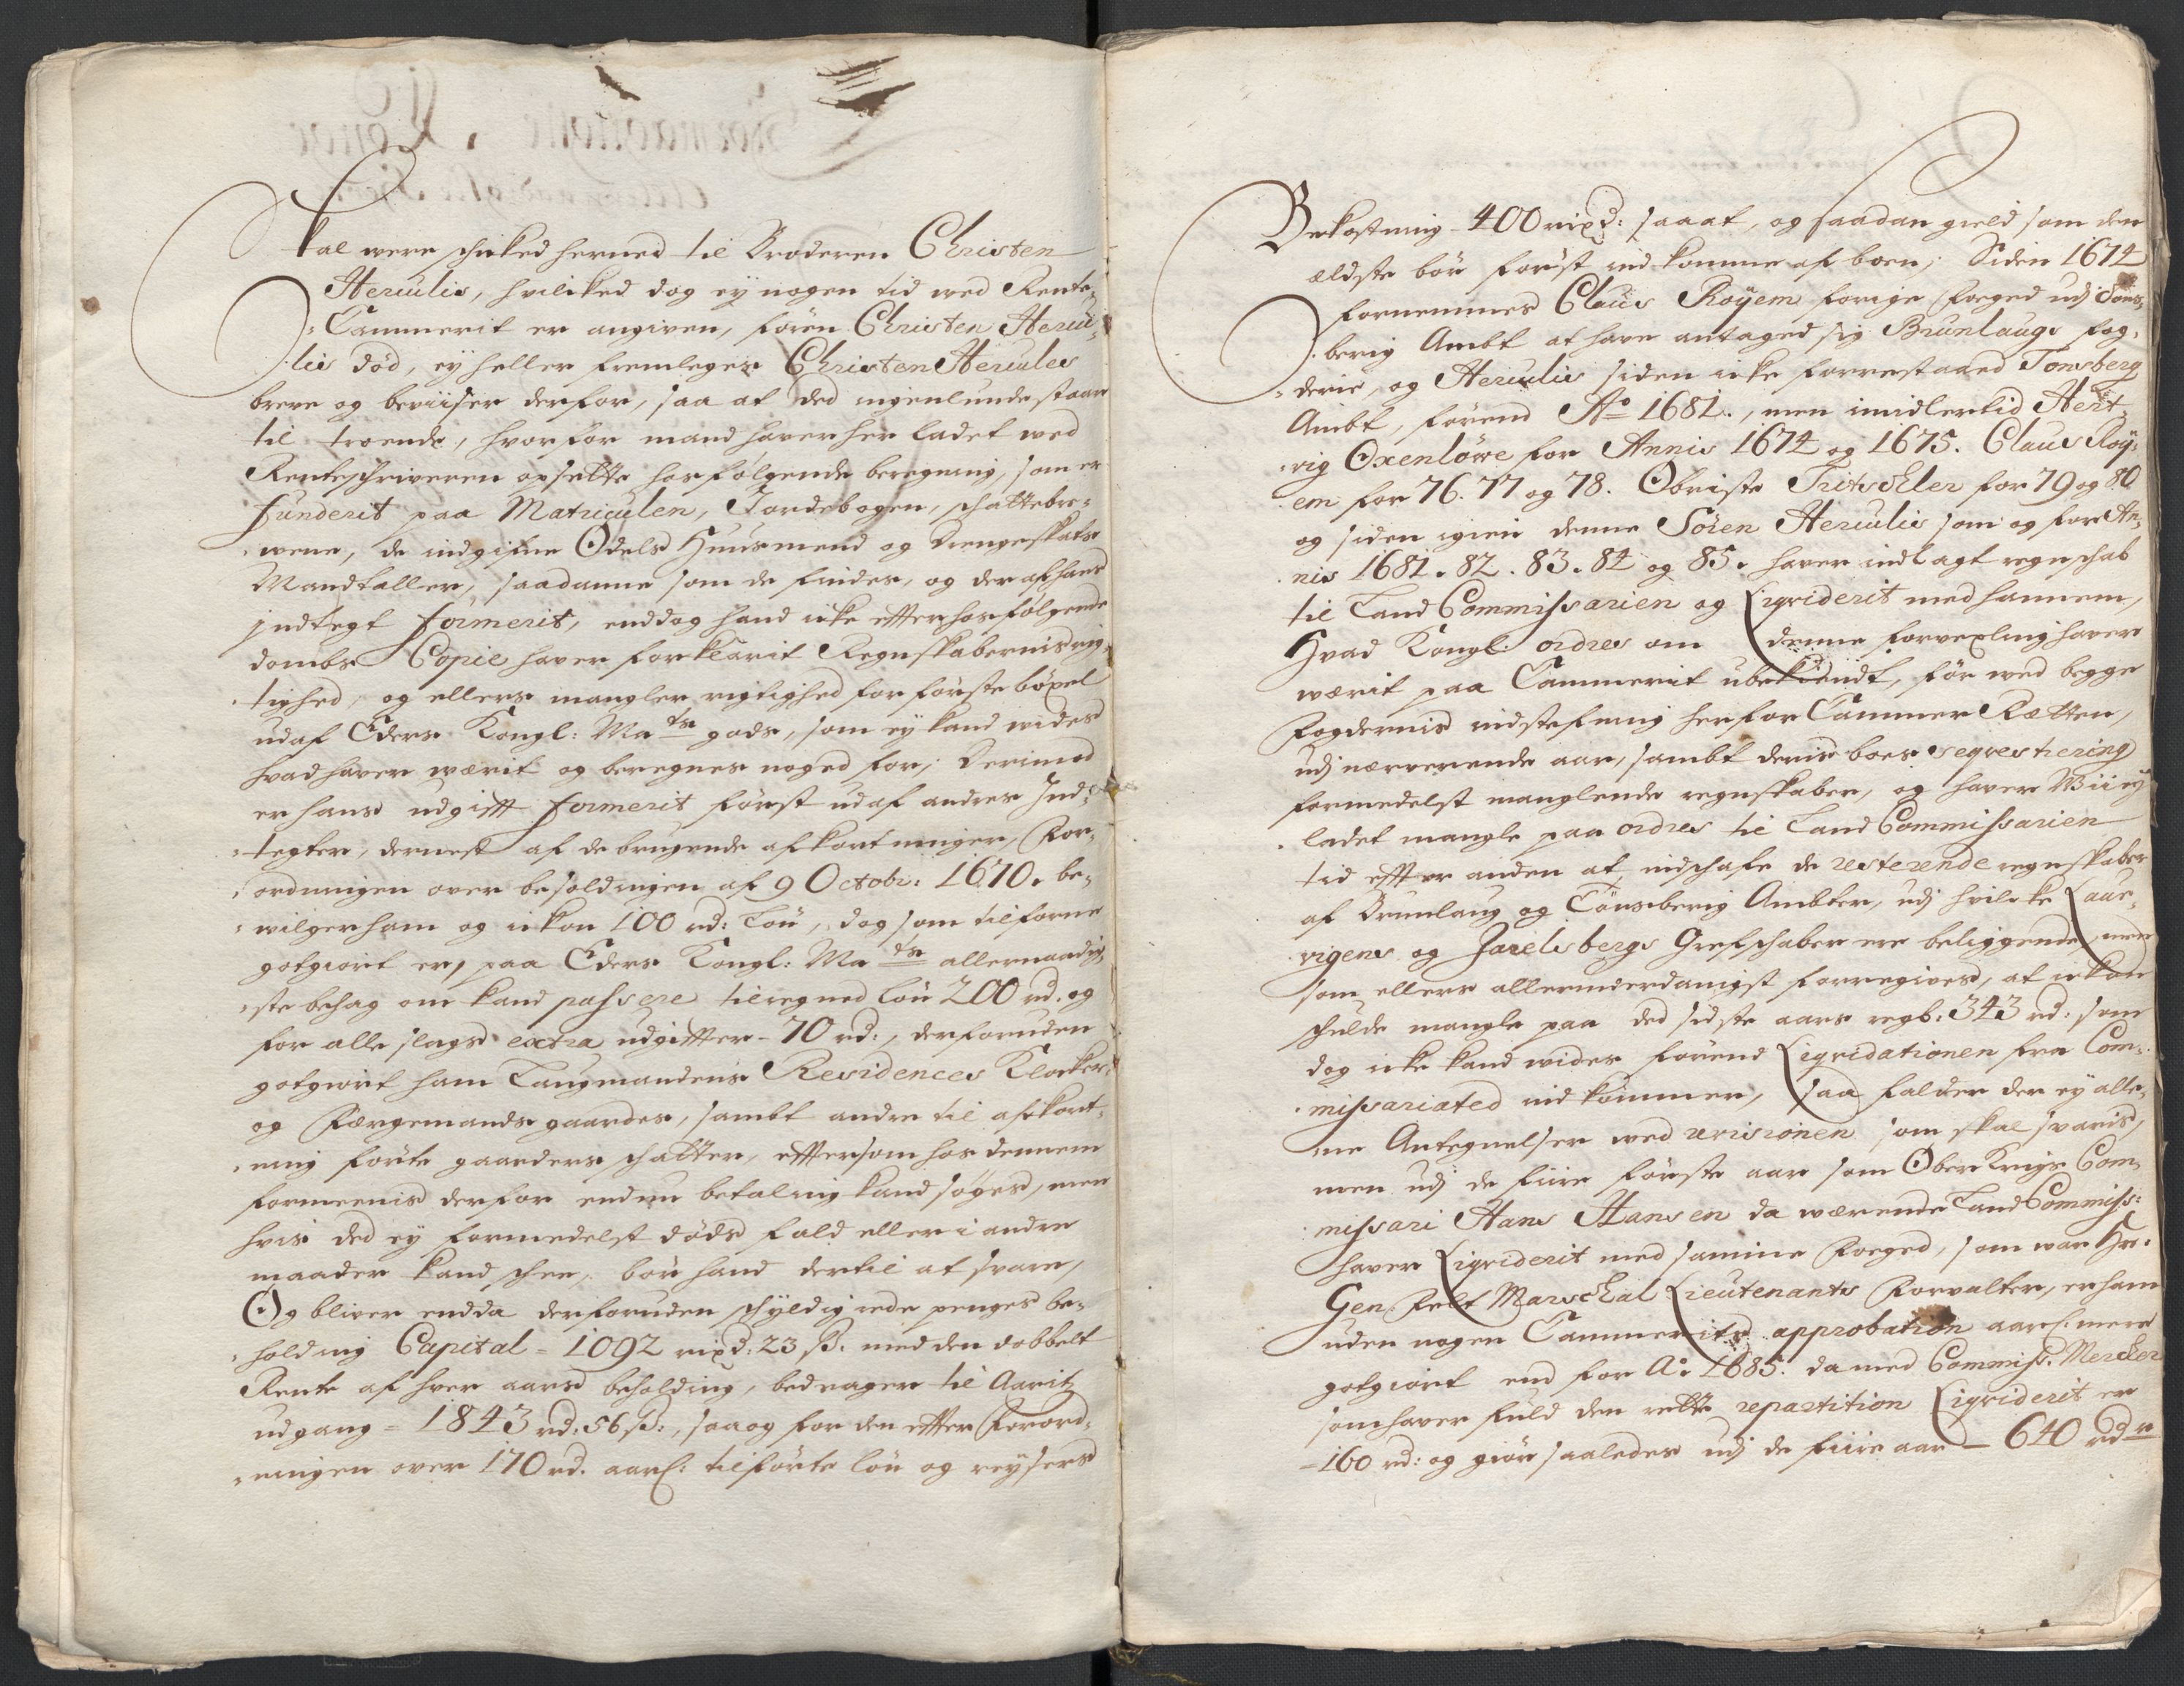 skal were schicked herned til Broderen Christen
Herculis, hvilcked dog ey nogen tid wed Rente,,
,,Cammerit er angiven, förin Christen Hercu,,
,,lis död, ey heller fremleger Christen Hercules
breve og beviiser derfor, saa at ded ingenlunde staar
til troende, hvorfor mand haver her ladet wed
Renteschriveren opsette hosfölgende beregning, som er
funderit paa Matriculen, Jordebogen, schattebre,,
,,wene, de indgifne Odels Huusmend og Drengeskats
Mandtaller, saadanne som de findes, og der af hans
Indtegt formerit, enddog hand icke effter hosfölgende
dombs Copie haver forklarit Regnskabernis rig,,
,,tighed, og ellers mangler rigtighed for förste böxel
udaf Eders Kongl: Ma ts gods, som ey kand wides
hvad haver wærit og beregnes noged for, Derimod
er hans udgifft formerit först udaf andres Ind,,
,,tegter, dernest af de brugende afkortninger, For,,
,,ordningen over besoldningen af 9 Octobr: 1670. be,,
,,wilger ham og ickon 100 rd: Lön, dog som tilforne
gotgiort er, paa Eders Kongl: Ma ts allernaadig,,
,,ste behag om kand passere tilregned lön 200 rd. og
for alle slags extra udgiffter - 70 rd:, derforuden
gotgiort ham Laugmandens Residences Klocker,,
og Færgemands gaardes, sambt andre til afkort,,
,,ning förte gaarders schatter, effter som hos dennem
formeenis derfor endnu betaling kand söges, men
hvis ded ey formedelst döds fald eller i andre
maader kand schee, bör hand dertil at svare,
Og bliver endda derforuden schyldig rede penges be,,
,,holdning Capital = 1092 rixd: 23 s. med den dobbelt
Rente af hver aars beholding, bedrager til Aaritz
udgang = 1843 rd: 56 s:, saa og for den effter Forord,,
,,ningen over 170 rd. aarl: tilförte lön og reysers
Bekostning - 400 rixd: saaat, og saadan gield som den
ældste bör först ind komme af boen, Siden 1674
fornemmes Claüs Roÿem forige Foged udj Töns,,
,,berig Ambt at have antaged sig Brunlaugs fog,,
,,derie, og Herculis siden icke forrestaaed Tonsberg
Ambt, förend Ao 1681., men imidlertid Hert,,
,,vig Oxenlöwe for Annis 1674 og 1675. Claus Roÿ,,
em for 76. 77 og 78. Obriste Tritschler for 79 og 80
og siden igien denne Sören Herculis som og for An,,
,,nis 1681. 82. 83. 84 og 85. haver indlagt regnschab
til Land Commissarien og Liqviderit med hannem,
Hvad Kongl: ordres om denne forvexling haver
wærit paa Cammerit ubekiendt, för wed begge
Fogdernis indstefning herfor Cammer Rætten,
udj nærverende aar, sambt deris boes seqvestrering
formedelst manglende regnskaber, og haver Wii ey
ladet mangle paa ordres til Land Commissarien
tid effter anden at indschafe de resterende regnskaber
af Brunlaug og Tönsberig Ambter, udj hvilcke Laur,,
,,vigens og Jarelsbergs Grefschaber ere beliggende, men
som ellers allerunderdanigst forregives, at ickon
schulde mangle paa ded sidste aars regb: 343 rd: som
dog icke kand wides förend Liqvidationen fra Com,,
,,missariated indkommer, saa falder der ey alle,,
,,ne Antegnelser wed revisionen som skal svaris,
men udj de fiire förste aar som Ober Krigs Com,,
,,missari Hans Hansen da wærende Land Commiss:
haver Liqviderit med samme Foeged, som war Hr.
Gen. Felt Marschal Lieutenants Forvalter, er ham
uden nogen Cammerits approbation aarl: mere
gotgiort end for Ao 1685. da med Commiss. Mercker
som haver fuld den rette repartition Liqviderit er
= 160 rd: og giör saaledes udj de fiire aar - 640 rdr